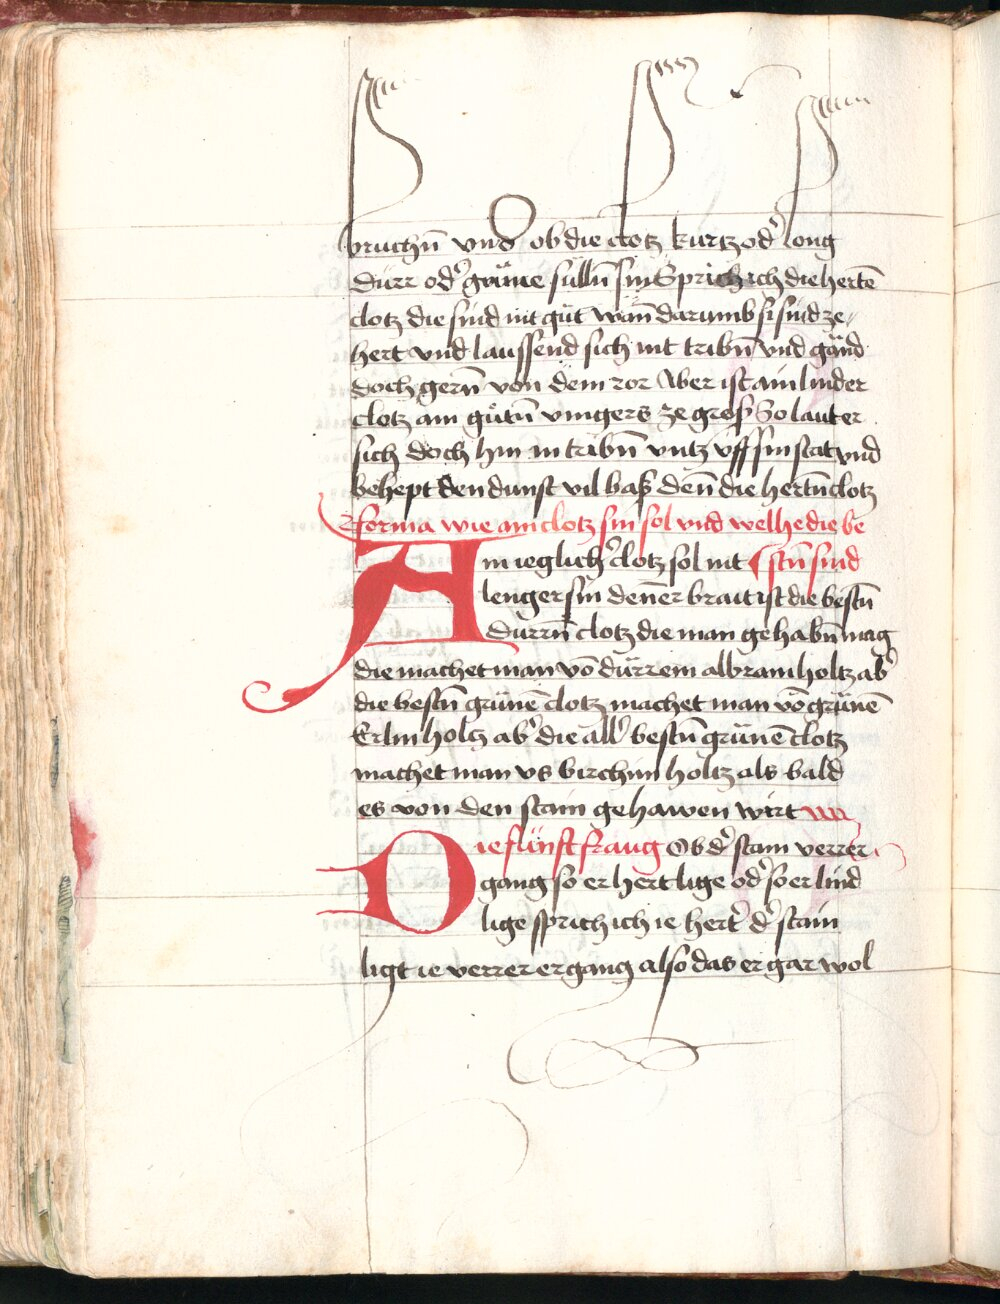 bruchn̄ vnd ob die clotz kurtz od᷎ long
Dürr od᷎ grüne sülln̄ sin Sprich ich die herten̄
clotz die sind nit gůt wan̄ darumb si sind ze
hert vnd laussend sich nit tribn̄ vnd gänd
doch gern̄ von dem ror Aber ist ain linder
clotz ain gůtn̄ vingers ze groſß So lauter
sich doch hin in tribn̄ vntz vff sin stat vnd
behept den dunst vil baſß den̄ die hertn̄ clotz
forma wie ain clotz sin sol vnd welhe die be
Ain ieglich᷎ clotz sol nit (stn̄ sind
lenger sin denn er brait ist die bestn̄
Dürrn̄ clotz die man gehabn̄ mag
die machet man vō dürrem albramholtz ab᷎
die bestn̄ grünē clotz machet man vō grünē
Erlin holtz ab᷎ die all᷎ bestn̄ grünē clotz
machet man vs birchim holtz als bald
es von den stam gehawen wirt
Die fünft fraug Ob d᷎ stain verrer
gang so er hert lige od᷎ so er lind
lige sprich ich ie hert᷎ d᷎ stain
ligt ie verrer er gang also das er gar wol